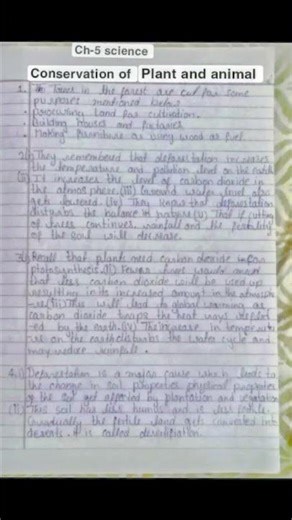 Ch-5 science
Conservation of Plant and animal
1. Trees in the forest are cut for some
purposes mentioned below
• procuring land for cultivation.
• Building houses and factories
• Making furniture as using wood as fuel.
2(i) They remembered that deforestation increases
the temperature and pollution level on the earth
(ii) It increases the level of carbon dioxide in
the atmosphere. (iii) Ground water level also
gets lowered (iv) They know that deforestation
disturbs the balance in nature (v) That if cutting
of trees continues, rainfall and the fertility
of the soil will decrease.
3(i) Recall that plants need carbon dioxide for
photosynthesis. (ii) Fewer trees would mean
that less carbon dioxide will be used up
resulting in its increased amount in the atmosphe
-re (iii) This will lead to global warming as
carbon dioxide traps the heat rays reflect
-ed by the earth. (iv) The increase in temperatu
-re on the earth disturbs the water cycle and
may reduce rainfall.
4.(i) Deforestation is a major cause which leads to
the change in soil properties physical properties
of the soil get affected by plantation and vegetation
(ii) This soil has less humus and is less fertile.
Gradually the fertile land gets converted into
deserts. It is called desertification.